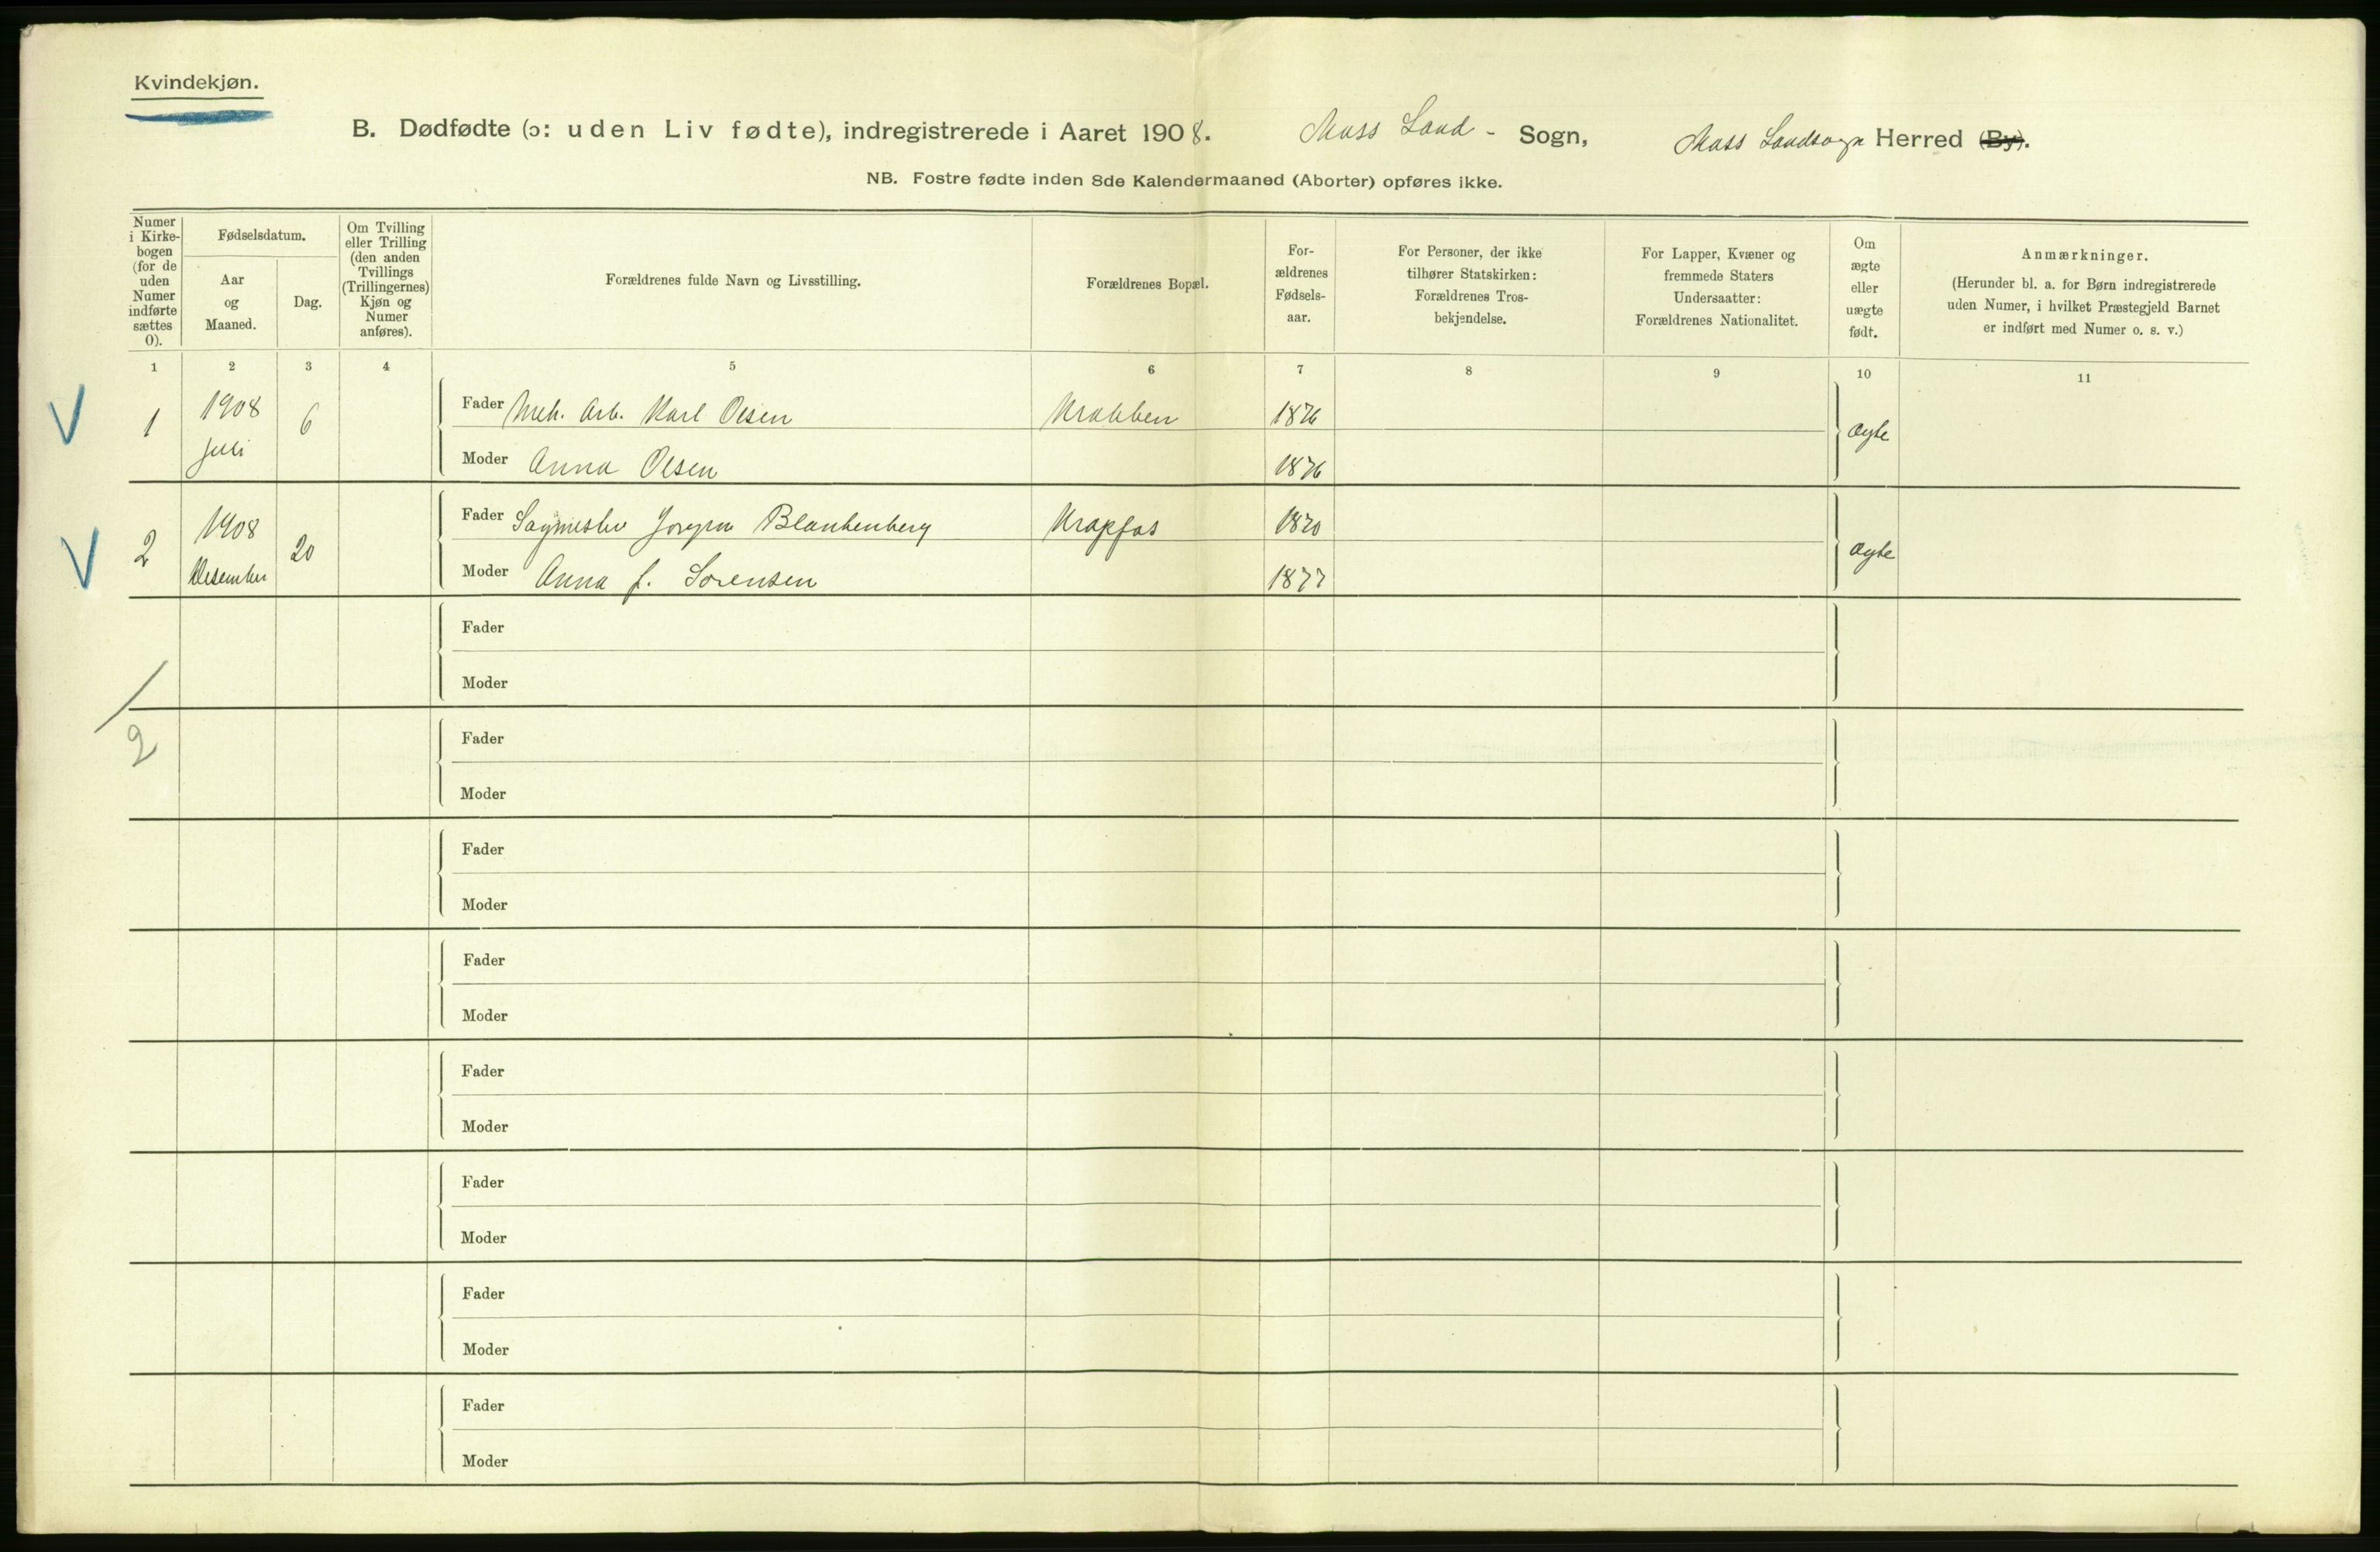 Kvindekjøn.
B. Dødfødte (ɔ: uden Liv fødte), indregistrerede i Aaret 1908. Moss Land- Sogn, Moss Landsogn Herred (By).
NB. Fostre fødte inden 8de Kalendermaaned (Aborter) opføres ikke.
Numer i Kirke-bogen (for de uden Numer indførte sættes 0).
Fødselsdatum.
Aar og Maaned.
Dag.
Om Tvilling eller Trilling (den anden Tvillings (Trillingernes) Kjøn og Numer anføres).
Forældrenes fulde Navn og Livsstilling.
Forældrenes Bopæl.
For-ældrenes Fødsels-aar.
For Personer, der ikke tilhører Statskirken: Forældrenes Tros-bekjendelse.
For Lapper, Kvæner og fremmede Staters Undersaatter: Forældrenes Nationalitet.
Om ægte eller uægte født.
Anmærkninger.
(Herunder bl. a. for Børn indregistrerede uden Numer, i hvilket Præstegjeld Barnet er indført med Numer o. s. v.)
1 2 3 4 5 6 7 8 9 10 11
V 1 1908 Juli 6 Fader Mek. Arb. Karl Olsen Krabben 1876 Ægte
Moder Anna Olsen 1876
V 2 1908 Desember 20 Fader Jørgen Blankenberg Krapfos 1870 Ægte
Moder Anna f. Sørensen 1877
Fader
Moder
2
Fader
Moder
Fader
Moder
Fader
Moder
Fader
Moder
Fader
Moder
Fader
Moder
Fader
Moder